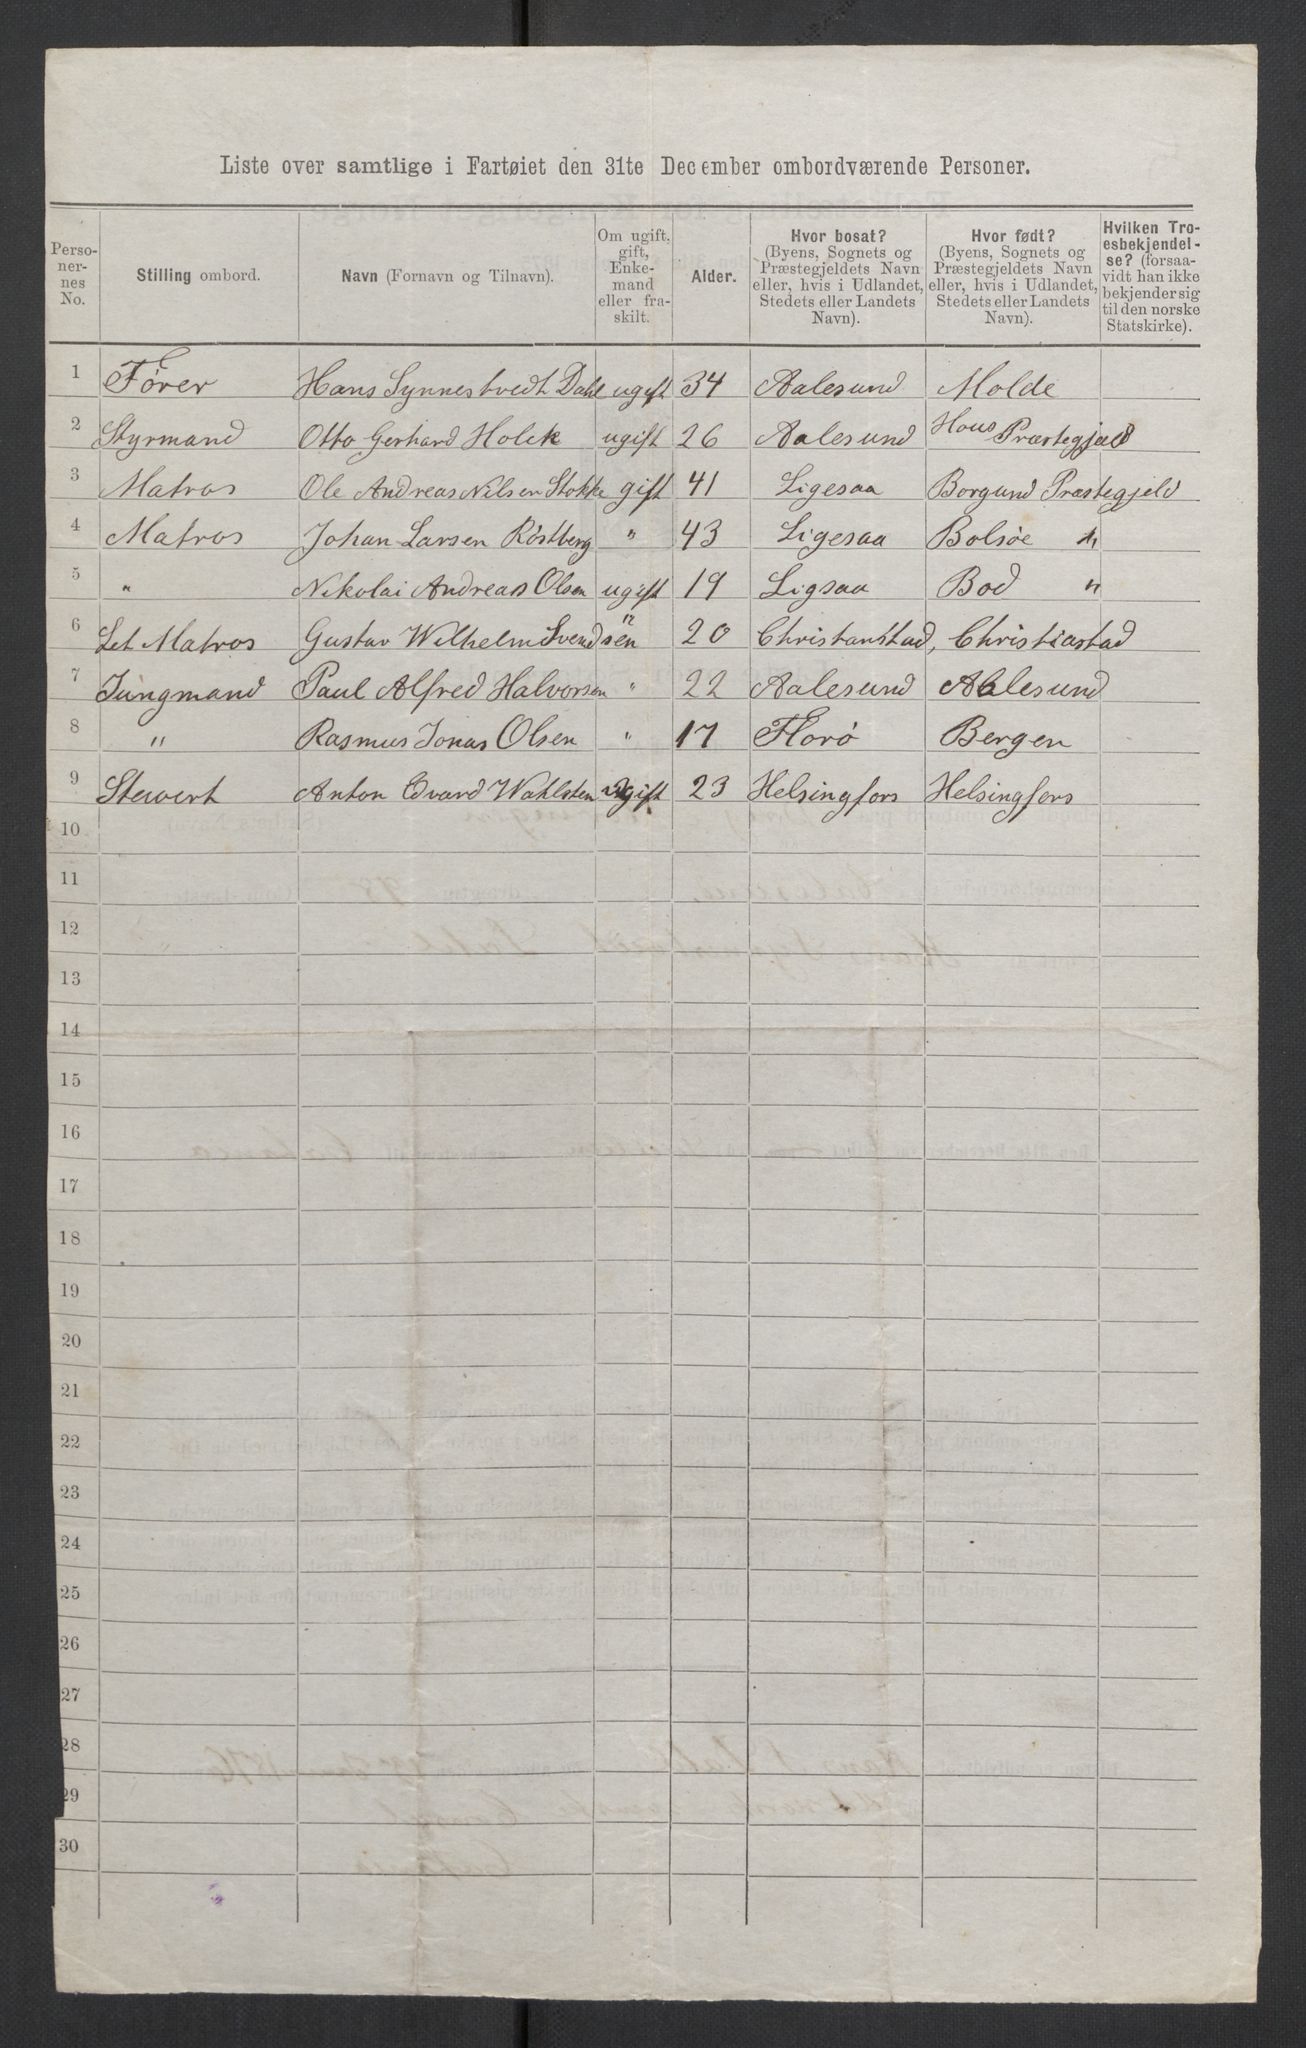 Liste over samtlige i Fartøiet den 31te December ombordværende Personer.
Perso-
ner-
nes
No.
Stilling ombord.
Navn (Fornavn og Tilnavn).
Om ugift,
gift,
Enke-
mand
eller fra-
skilt.
Alder.
Hvor bosat?
(Byens, Sognets og
Præstegjeldets Navn
eller, hvis i Udlandet,
Stedets eller Landets
Navn).
Hvor født?
(Byens, Sognets og
Præstegjeldets Navn
eller, hvis i Udlandet,
Stedets eller Landets
Navn).
Hvilken Tro-
esbekjendel-
se? (forsaa-
vidt han ikke
bekjender sig
til den norske
Statskirke).
1 Fører Hans Synnestvedt Dahl ugift 34 Aalesund Molde
2 Styrmand Otto Gerhard Holck ugift 26 Aalesund Hous Præstegjeld
3 Matros Ole Andreas Nilsen Stokke gift 41 Ligesaa Borgund Præstegjeld
4 Matros Johan Larsen Röstberg " 43 Ligesaa Bolsöe "
5 " Nikolai Andreas Olsen ugift 19 Ligsaa Bod "
6 Let Matros Gustav Wilhelm Svendsen " 20 Christanstad, Christiastad
7 Jungmand Paul Alfred Halvorsen " 22 Aalesund Aalesund
8 " Rasmus Jonas Olsen " 17 Florö Bergen
9 Stewert Anton Edvard Wahlsten ugift 23 Helsingfors Helsingfors
10
11
12
13
14
15
16
17
18
19
20
21
22
23
24
25
26
27
28
29
30